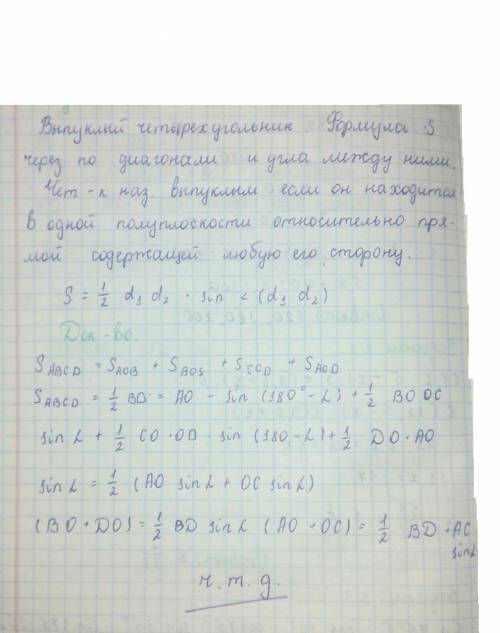 Выпуклый четырехугольник Формула S
через по диагонали и угла между ними.
Чет-к наз. выпуклым если он находится
в одной полуплоскости относительно пря-
мой содержащей любую его сторону.
S = 1/2 d₁ d₂ · sin < (d₁ d₂)
Док-во.
S_ABCD = S_AOB + S_BOS + S_COD + S_AOD
S_ABCD = 1/2 BO = AO - sin (180° - L) + 1/2 BO OC
sin L + 1/2 CO · OD · sin (180 - L) + 1/2 DO · AO
sin L = 1/2 (AO sin L + OC sin L)
(BO + DO) = 1/2 BD sin L (AO + OC) = 1/2 BD · AC
sin L
ч. т. д.